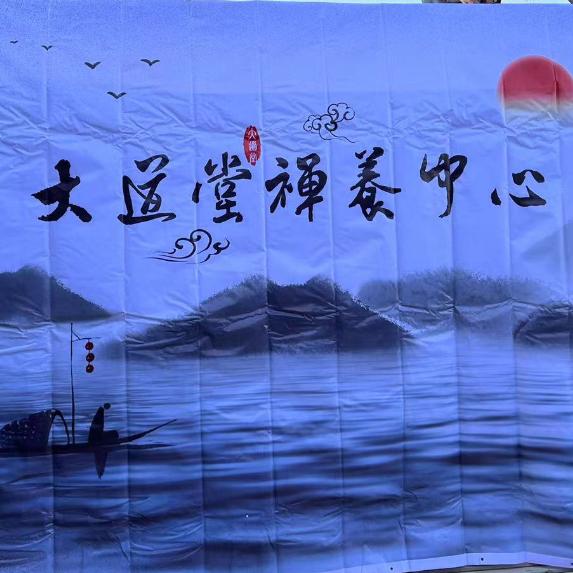 大道堂禅養中心